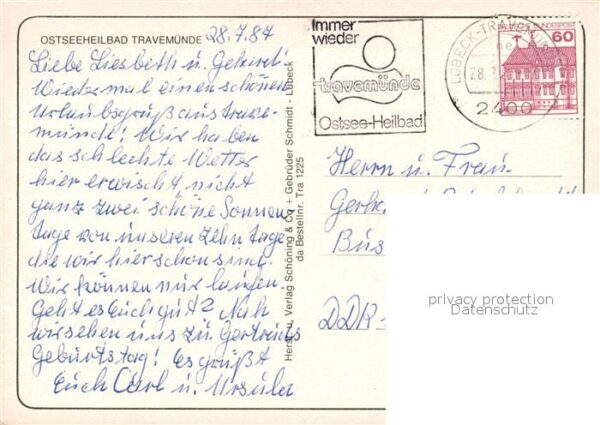 OSTSEEHEILBAD TRAVEMÜNDE
28.7.87
Liebe Liesbeth u. Gerhard!
Wieder mal einen schönen
Urlaubsgruß aus Trave-
münde! Wir haben
das schlechte Wetter
hier erwischt nicht
ganz zwei schöne Sonnen
tage von unseren zehn Tage
die wir hier schon sind.
Wir können nur laufen.
Geht es Euch gut? Nah
wir sehen uns zu Gertruds
Geburtstag! Es grüßt
Euch Carl u. Ursula
Herst. u. Verlag Schöning & Co + Gebrüder Schmidt - Lübeck
da Bestellnr. Tra 1225
Immer
wieder
travemünde
Ostsee-Heilbad
LÜBECK-TRAVEMÜNDE
28.7
2400
DEUTSCHE BUNDESPOST
60
Herrn u. Frau
DDR-
privacy protection
Datenschutz